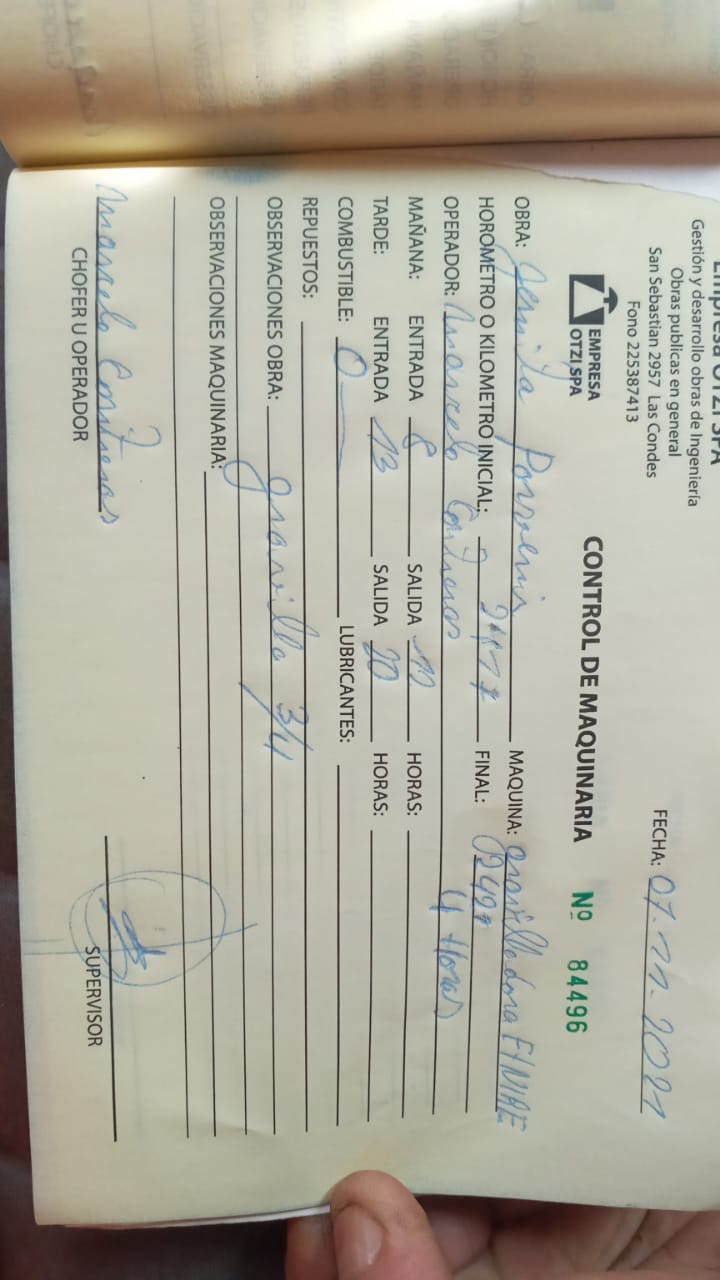 Empresa OTZI SPA
Gestión y desarrollo obras de Ingeniería
Obras publicas en general
San Sebastian 2957 Las Condes
Fono 225387413
FECHA: 07-11-2021
EMPRESA
OTZI SPA
CONTROL DE MAQUINARIA Nº 84496
OBRA: Porvenir MAQUINA: gravilladora
HOROMETRO O KILOMETRO INICIAL: 2417 FINAL: 02421
OPERADOR: Marcelo Contreras 4 Horas
MAÑANA: ENTRADA 8 SALIDA HORAS:
TARDE: ENTRADA 13 SALIDA 20 HORAS:
COMBUSTIBLE: 0 LUBRICANTES:
REPUESTOS:
OBSERVACIONES OBRA: gravilla 3/4
OBSERVACIONES MAQUINARIA:
Marcelo Contreras
CHOFER U OPERADOR
SUPERVISOR